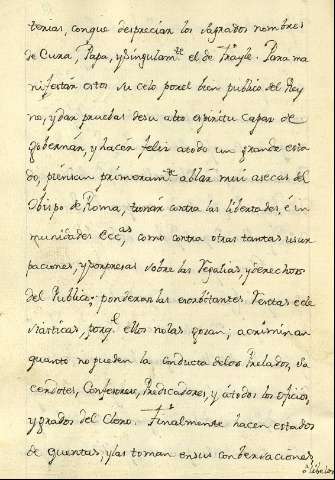 terias, conque desprecian los sagrados nombres
de Cura, Papa, y singularm.te el de Frayle. Para ma
nifestar estos su celo por el bien publico del Rey
no, y dar pruebas de su alto espiritu capaz de
gobernar, y hacer feliz a todo un grande esta
do, piensan primeram.te ablar mui a secas del
Obispo de Roma, tronar contra las libertades, é in
munidades Ecc.as, como contra otras tantas usur
paciones, y sorpresas sobre las regalias, y derechos
del Publico; ponderan las exorbitantes Rentas ecle
siasticas, porq.e ellos no las gozan; acriminan
quanto no pueden la conducta de los Prelados, Sa
cerdotes, Confesores, Predicadores, y á todos los oficios,
y grados del Clero. Finalmente hacen estados
de quentas, y las toman en sus conbersaciones,
ó libelos